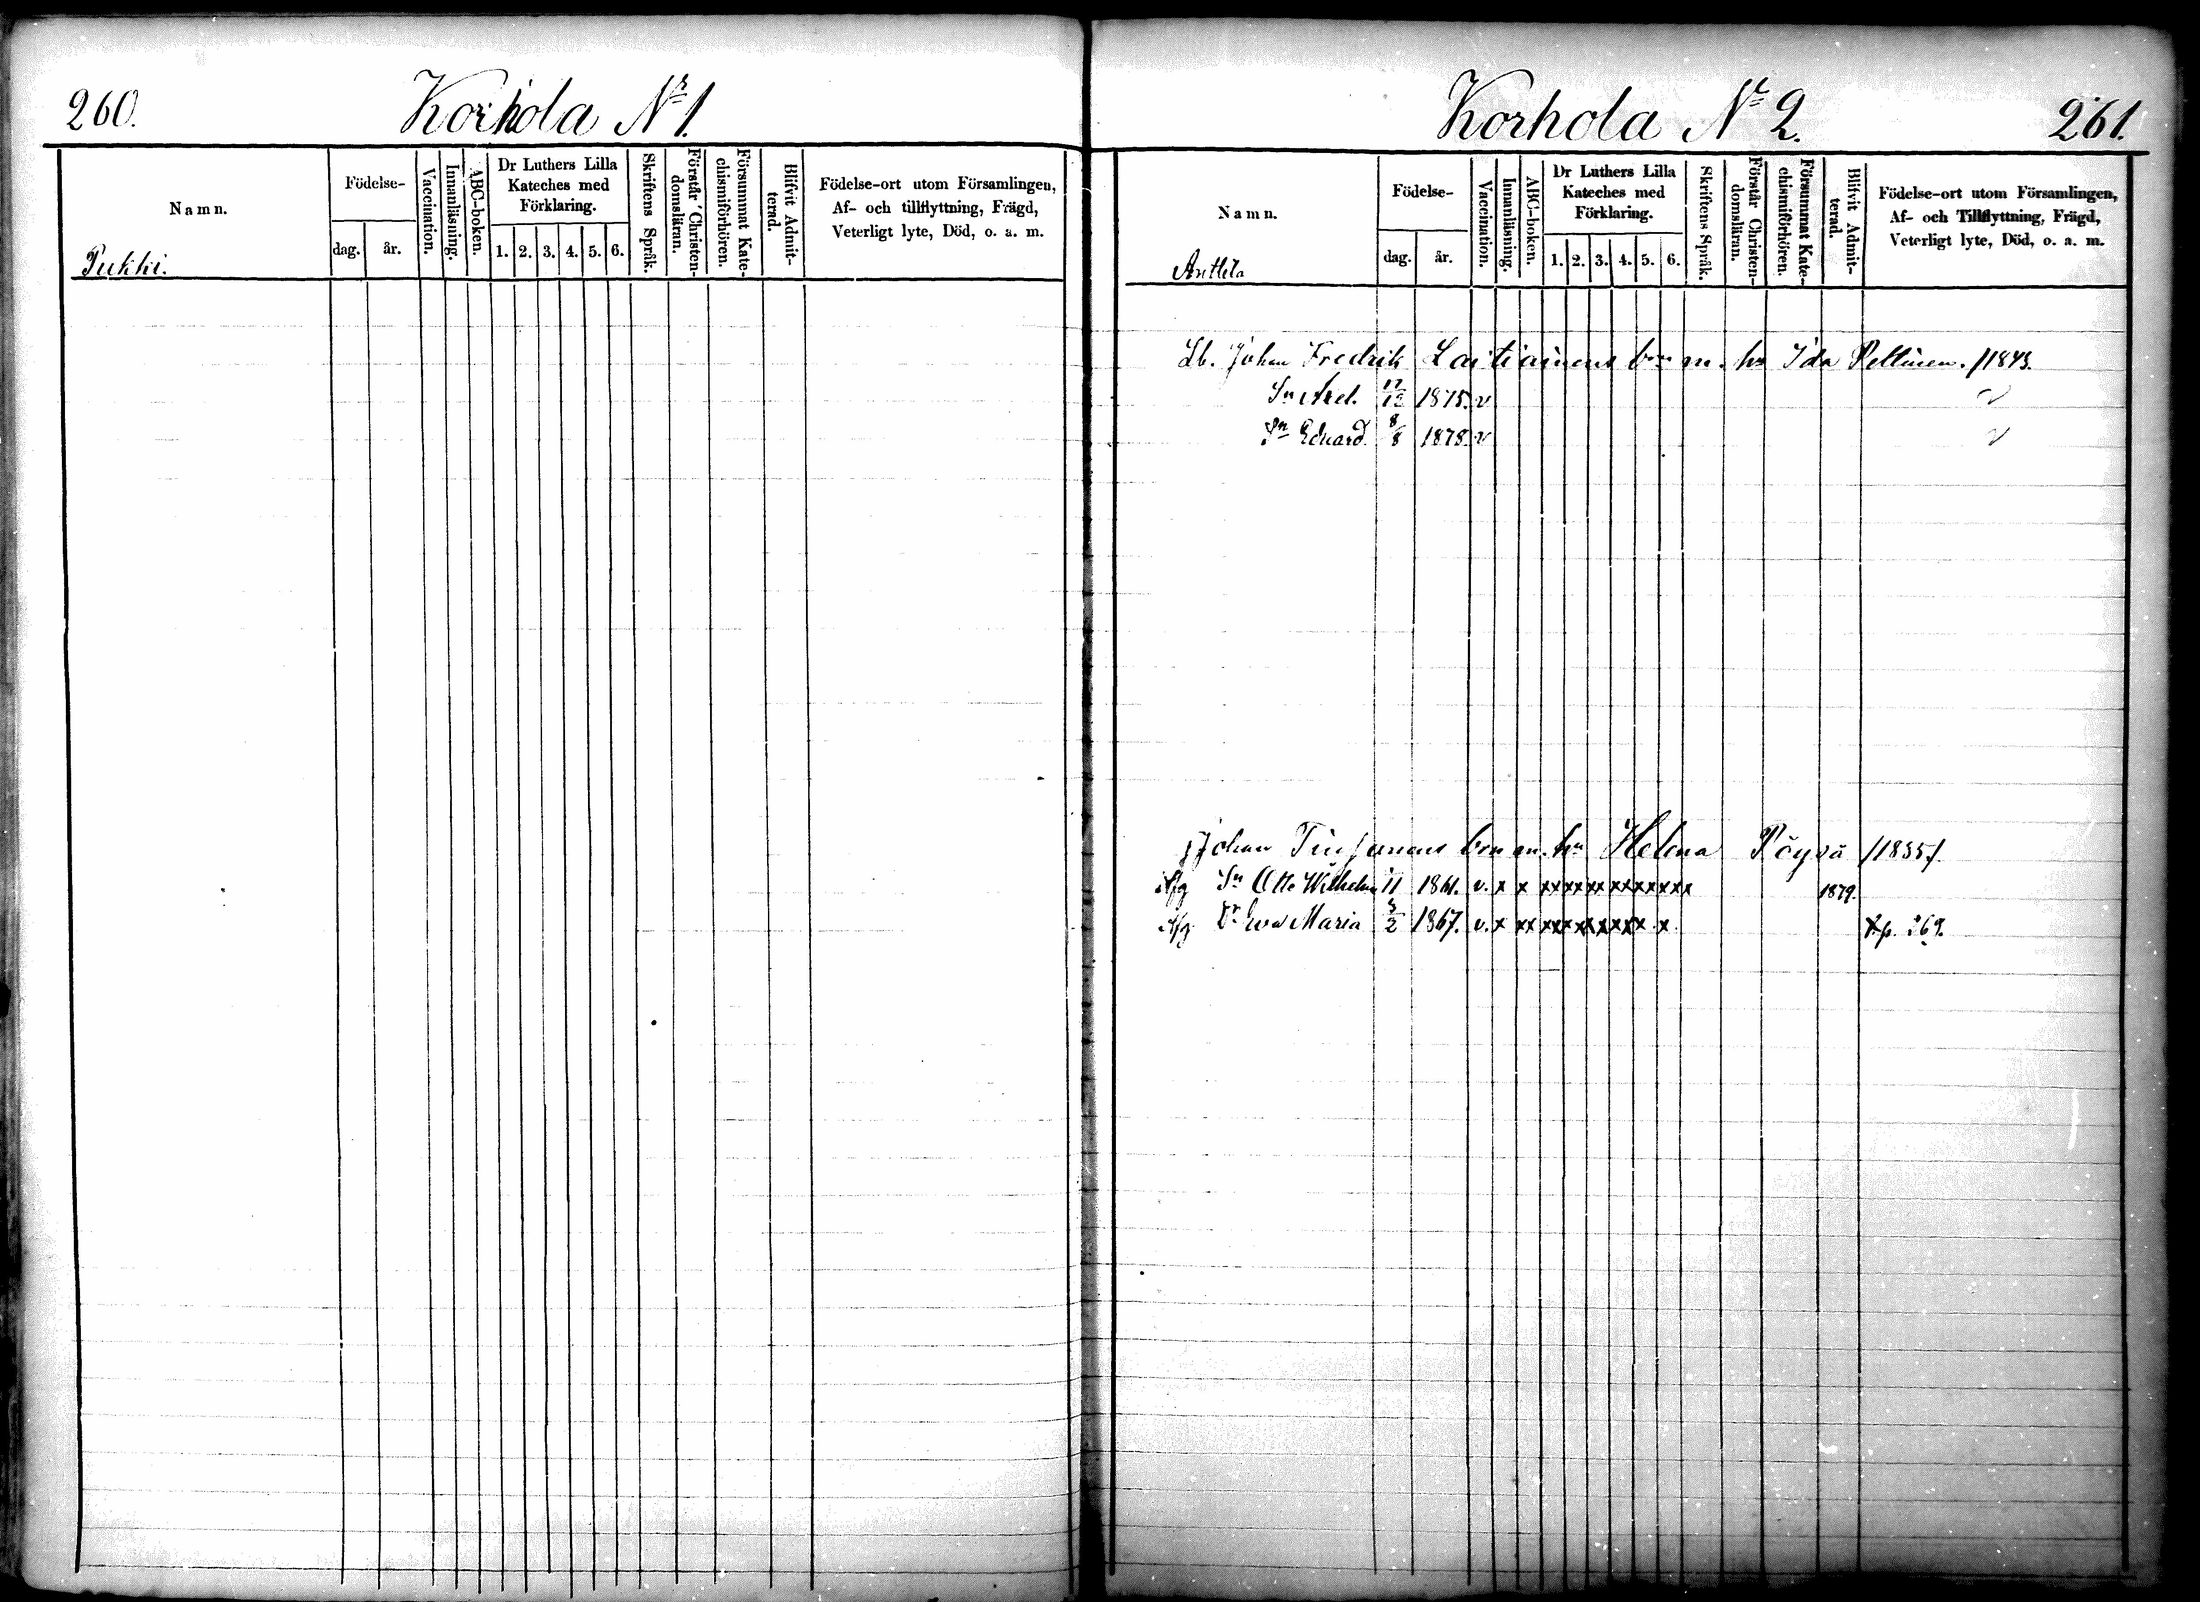 260.
Korhola Nr 1.
Namn.
Pukki.
Födelse-
dag.
år.
Vaccination.
Innanläsning.
ABC-boken.
Dr Luthers Lilla
Kateches med
Förklaring.
1. 2. 3. 4. 5. 6.
Skriftens Språk.
Förstår Christen-
domsläran.
Försummat Kate-
chismiförhören.
Blifvit Admit-
terad.
Födelse-ort utom Församlingen,
Af- och tillflyttning, Frägd,
Veterligt lyte, Död, o. a. m.
Korhola Nr 2.
261.
Namn.
Anttila
Födelse-
dag.
år.
Vaccination.
Innanläsning.
ABC-boken.
Dr Luthers Lilla
Kateches med
Förklaring.
1. 2. 3. 4. 5. 6.
Skriftens Språk.
Förstår Christen-
domsläran.
Försummat Kate-
chismiförhören.
Blifvit Admit-
terad.
Födelse-ort utom Församlingen,
Af- och Tillflyttning, Frägd,
Veterligt lyte, Död, o. a. m.
Lb. Johan Fredrik Laitiainens bn m. hn Ida Peltinen. /1843.
Sn Axel. 17/12 1875. v
Sn Eduard. 8/8 1878. v
Johan bn m. hn Helena Pöyrä /1835/.
Sn Otto Wilhelm 11 1861. v. x x xx xx xx xx xx xx x 1879.
Dr Eva Maria 3/2 1867. v. x xx xx xx xx xx x x x p. 269.